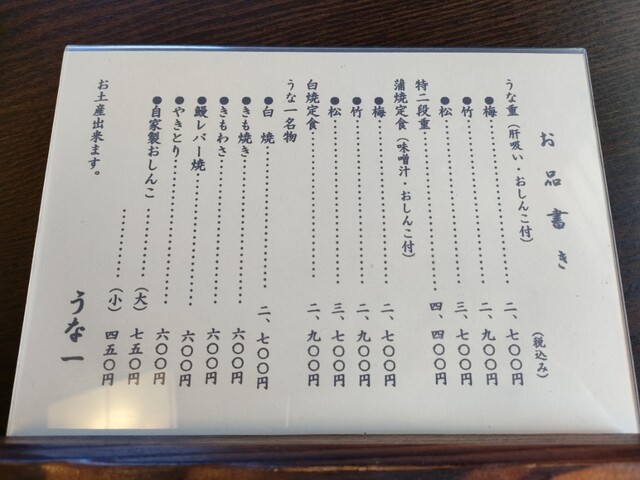 お品書き
（税込み）
うな重（肝吸い・おしんこ付）
●梅……………………二、七〇〇円
●竹……………………二、九〇〇円
●松……………………三、七〇〇円
特二段重……………………四、四〇〇円
蒲焼定食（味噌汁・おしんこ付）
●梅……………………二、七〇〇円
●竹……………………二、九〇〇円
●松……………………三、七〇〇円
白焼定食……………………二、九〇〇円
うな一名物
●白 焼……………………二、七〇〇円
●きも焼き……………………六〇〇円
●きもわさ……………………六〇〇円
●鰻レバー焼……………………六〇〇円
●やきとり……………………六〇〇円
●自家製おしんこ…………（大）七五〇円
…………（小）四五〇円
お土産出来ます。
うな一